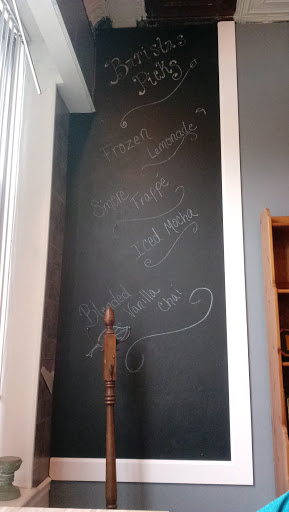 Baristas
Picks
Frozen
Lemonade
S'more
Frappé
Iced Mocha
Blended
Vanilla
Chai